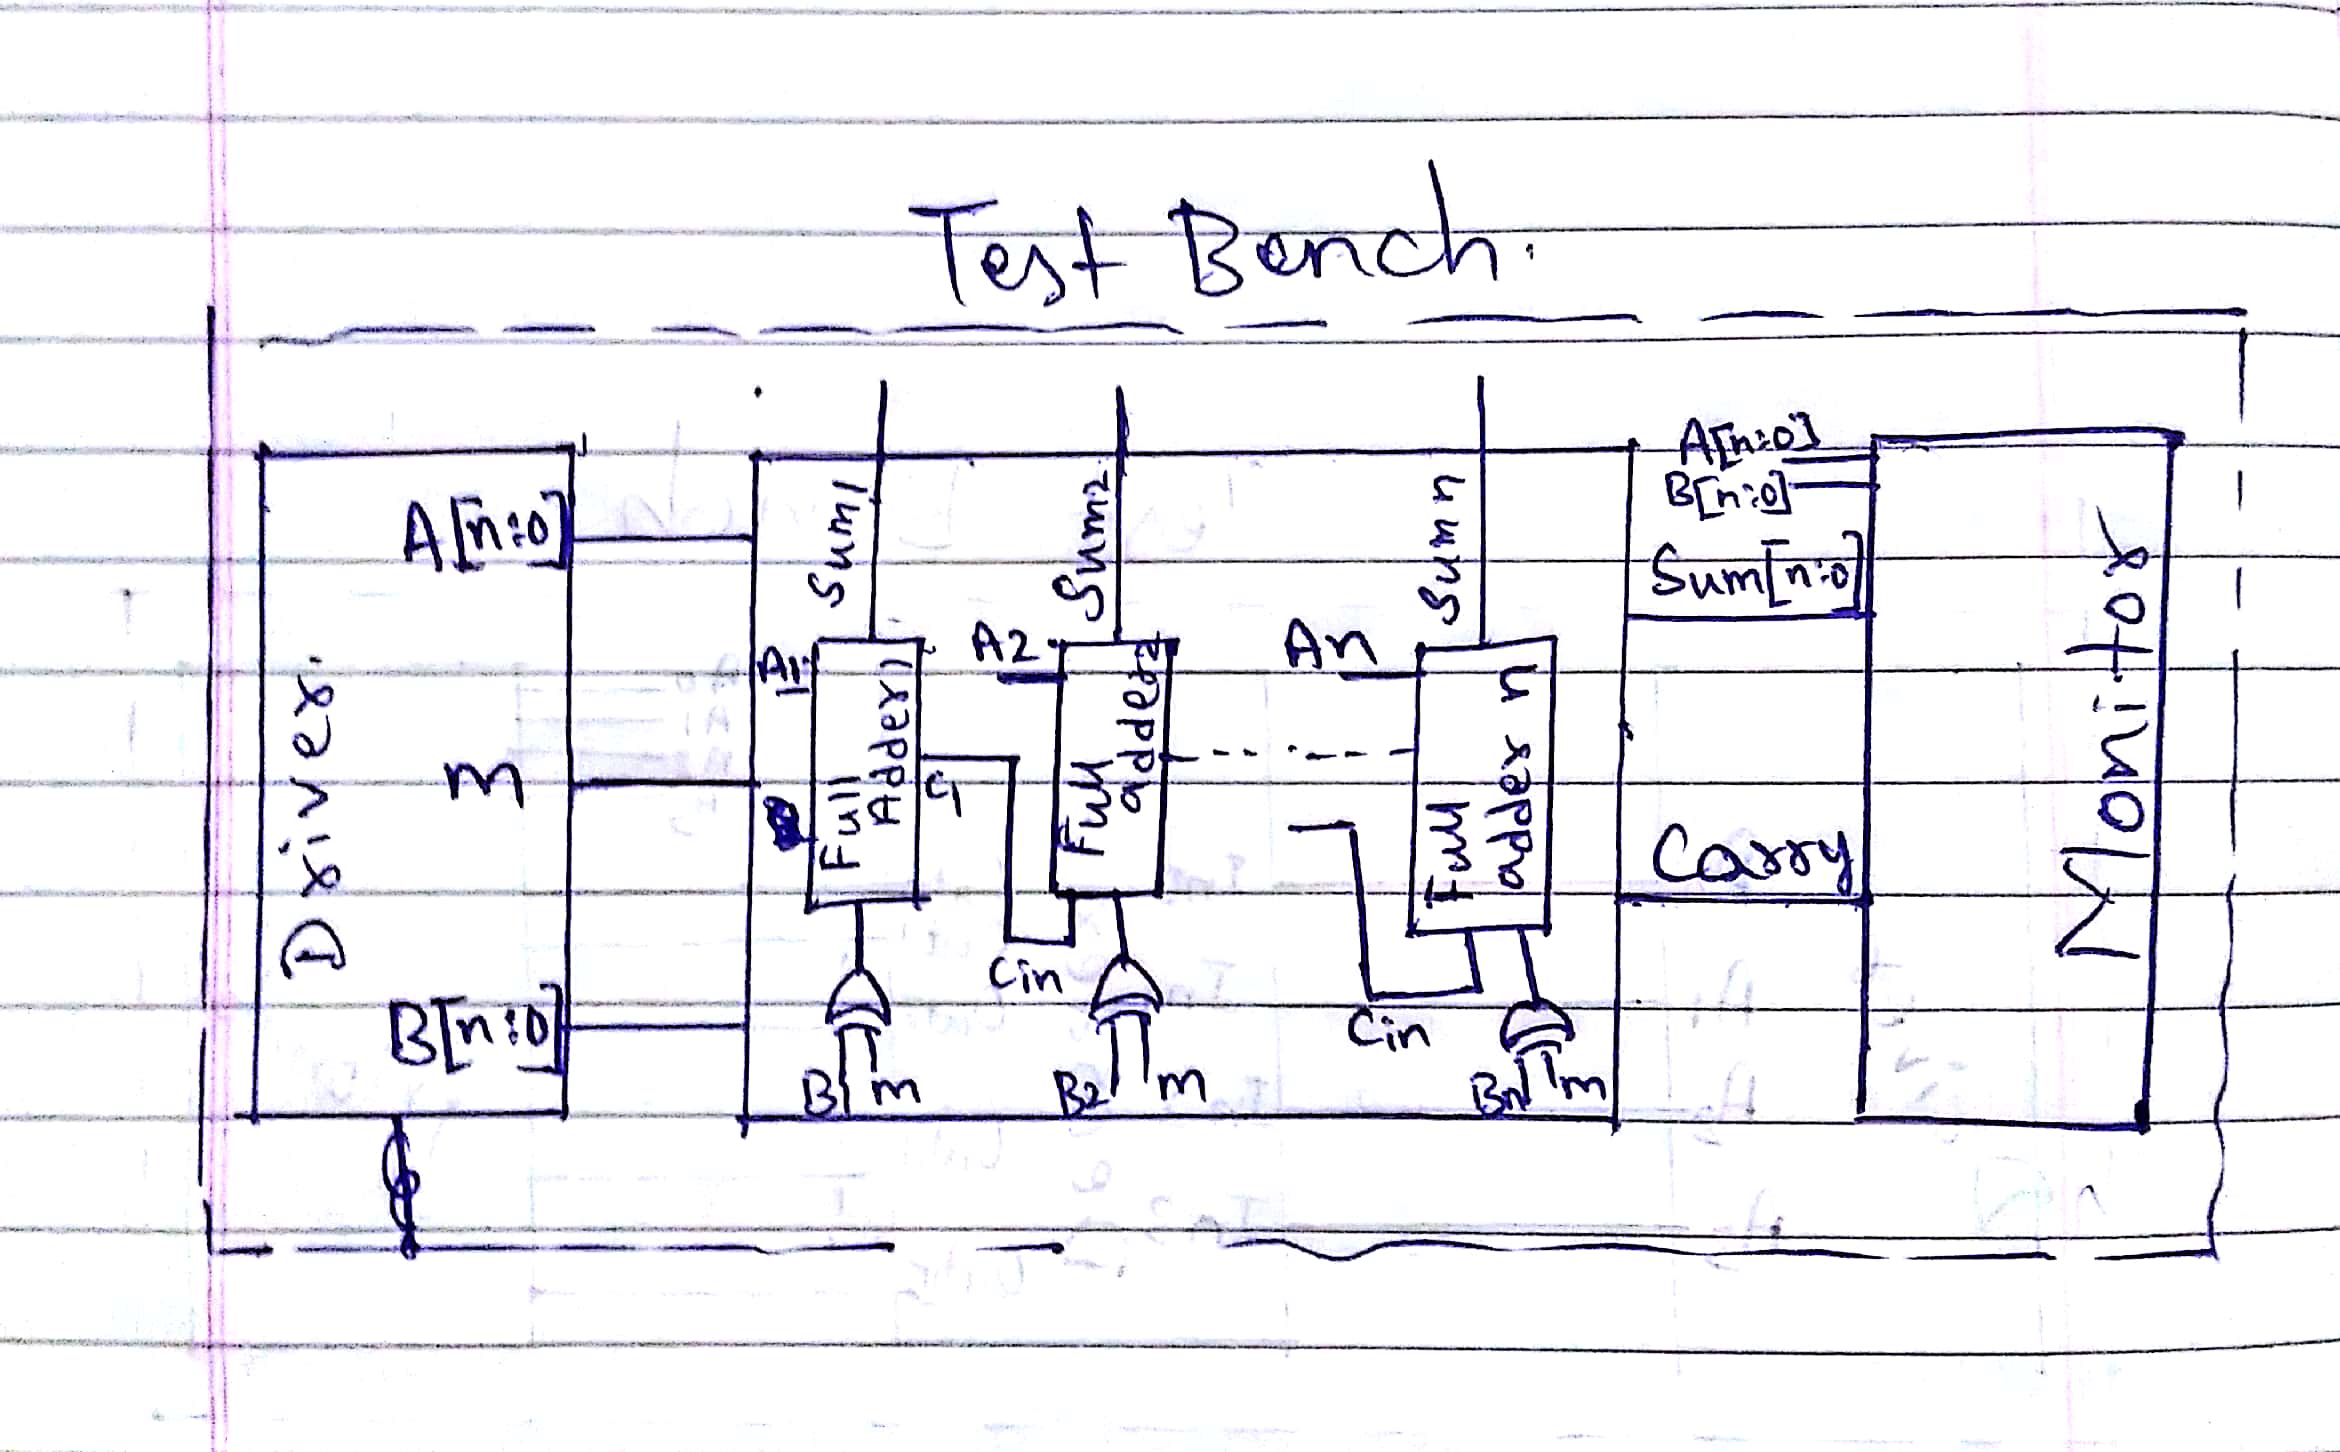 Test Bench.
Driver.
A[n:0]
m
B[n:0]
Sum1
A1
Full
Adder1
C1
B1 m
Sum2
A2
Full
adder2
Cin
B2 m
Sum n
An
Full
adder n
Cin
Bn m
A[n:0]
B[n:0]
Sum[n:0]
Carry
Monitor